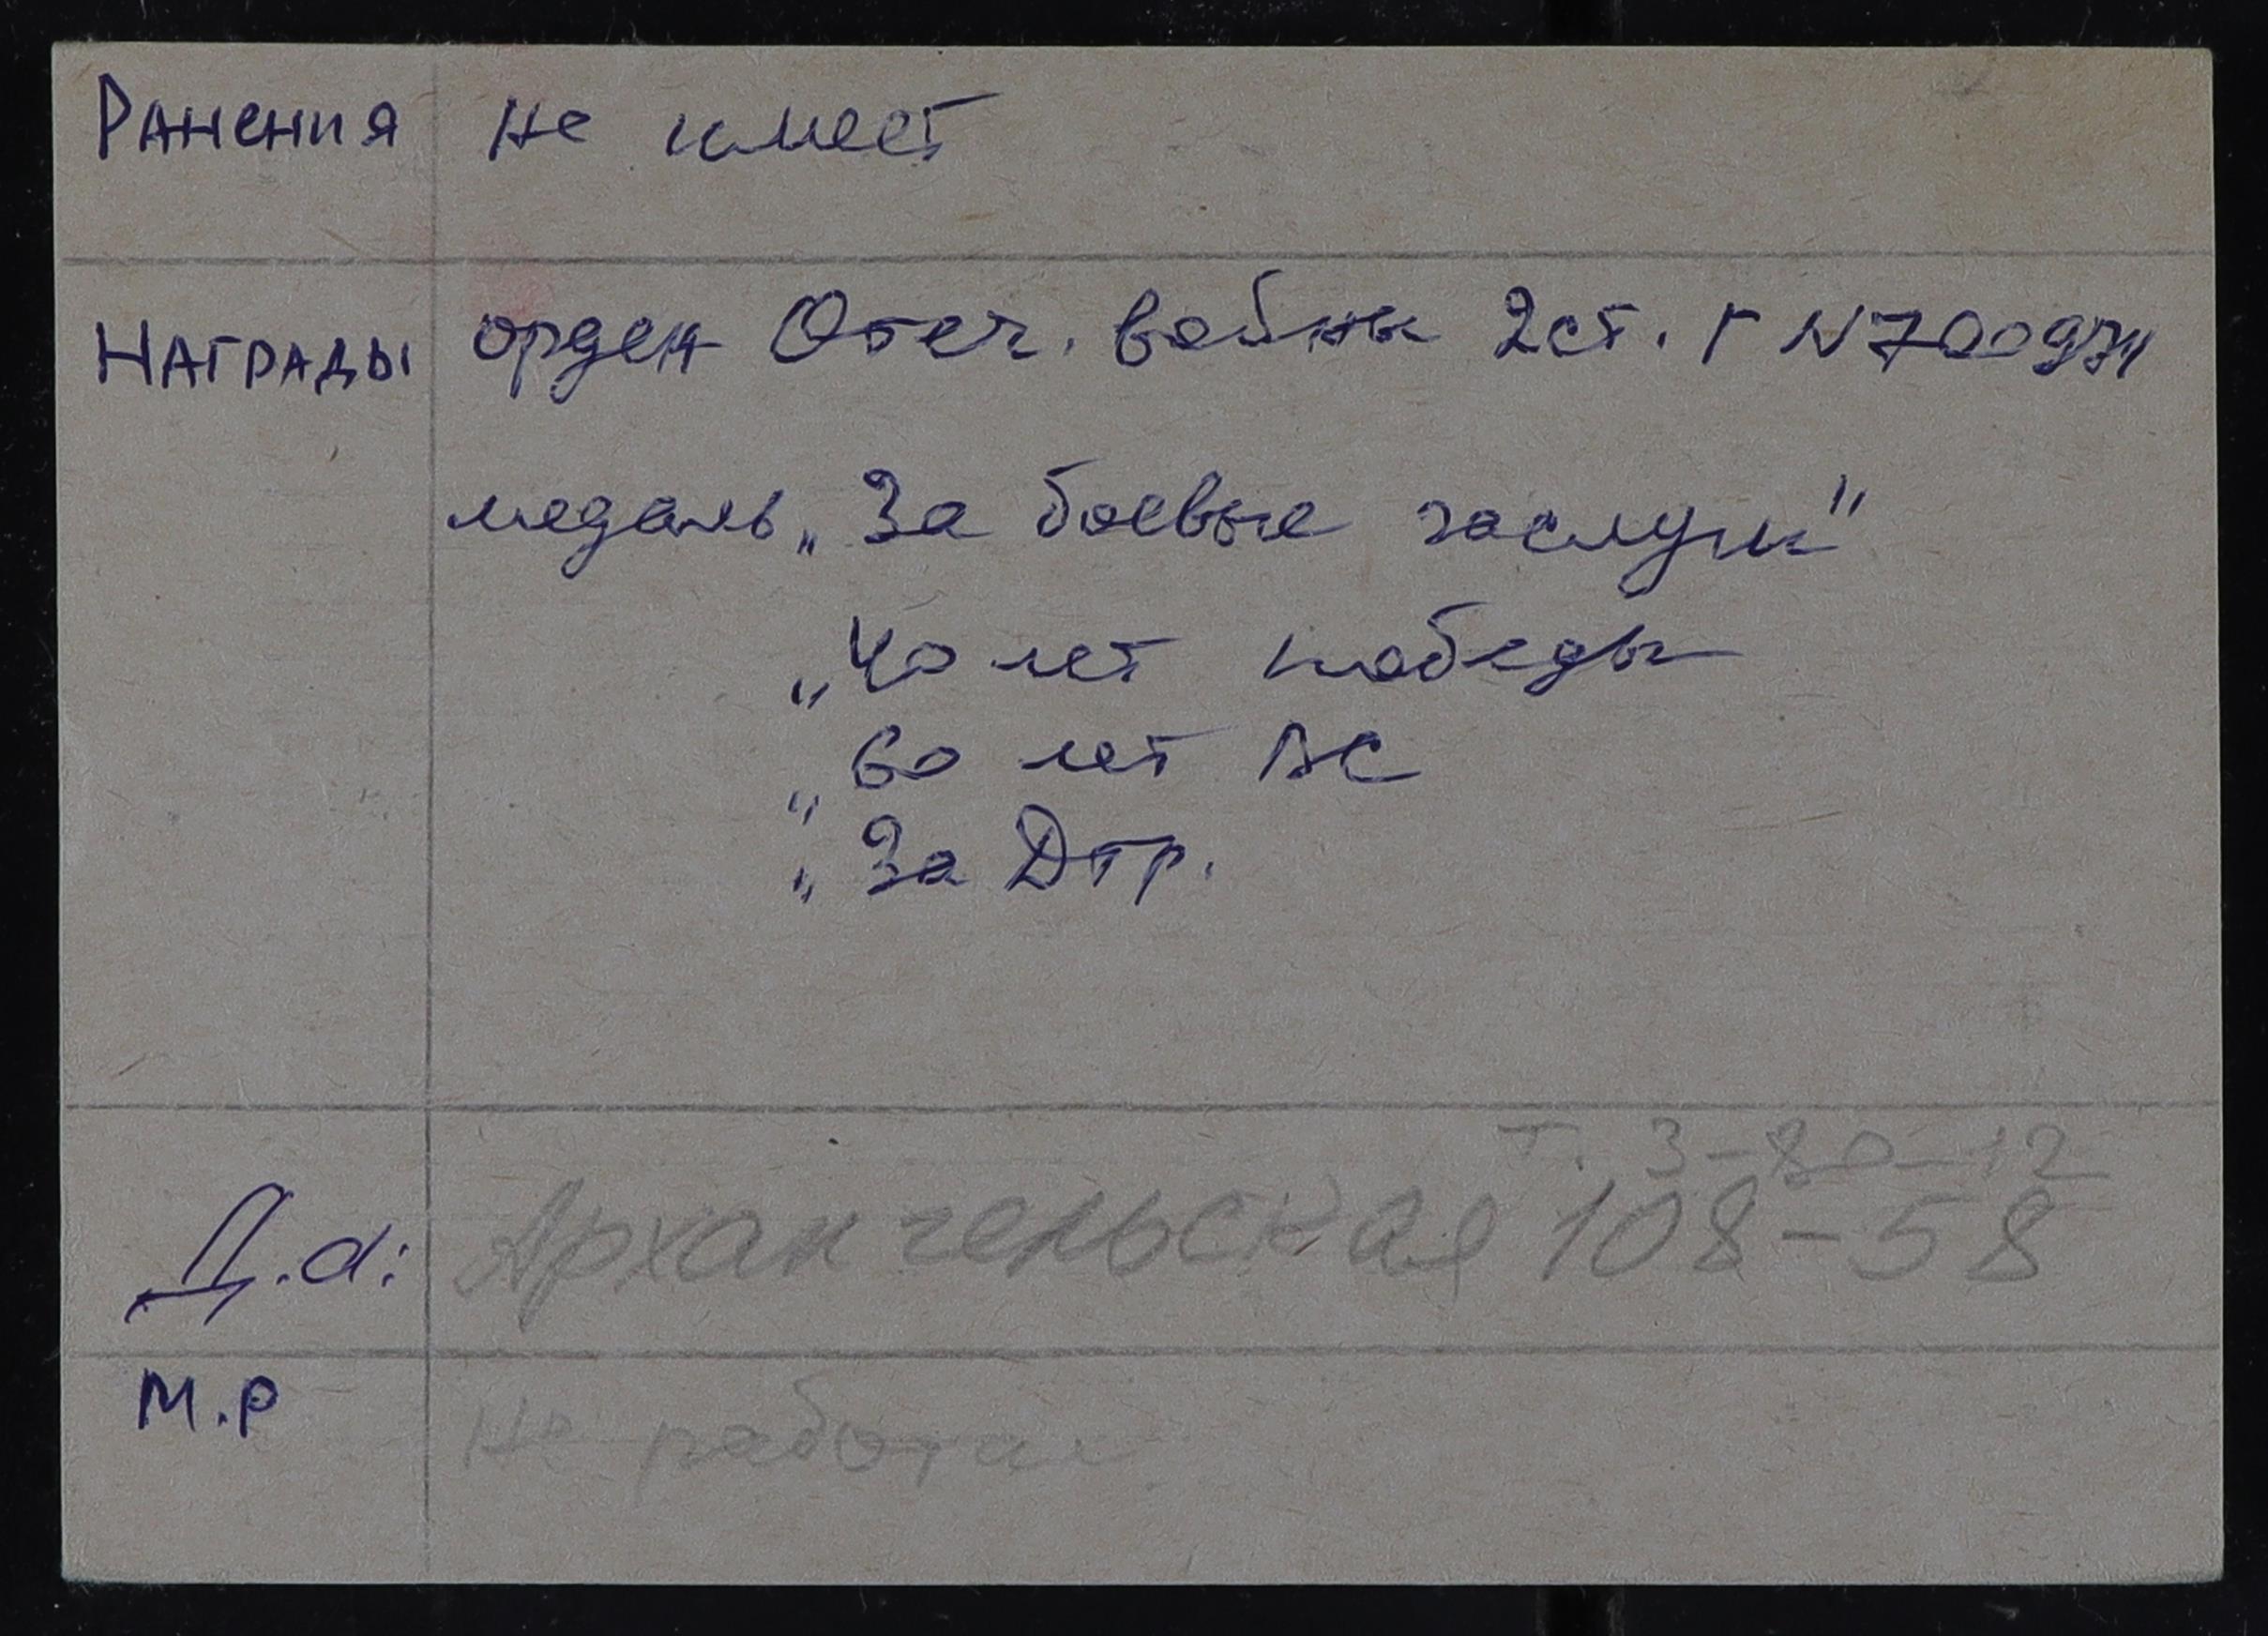 Ранения не имеет
Награды орден Отеч. войны 2 ст. Г N 700971
медаль „За боевые заслуги"
„40 лет победы
„60 лет ВС
„За Дтр.
т. 3-80-12
Д.а: Архангельская 108-58
М.Р Не работает